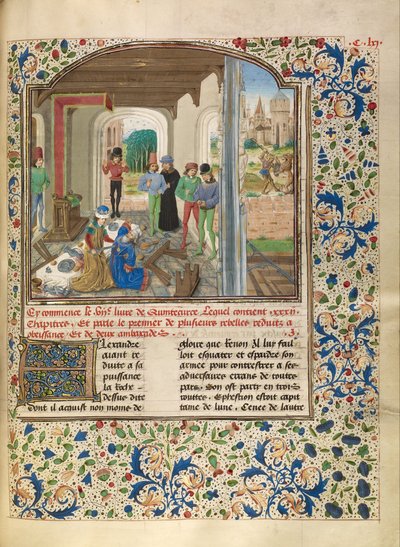 C. lxj.
Cy commence le viije livre de Quintecurce Lequel contient xxxij
Chapitres. Et parle le premier de plusieurs rebelles reduits a
obeissance. Et de deux ambaxades. j.
Alexandre
aiant re
duite a sa
puissance
la
dessus dite
Dont il acquist non moins de
gloire que renon. Il lui faul
loit et espardre son
armee pour contrester a ses
adversaires errans de toutes
pars. Son ost party en trois
routes. Ephestion estoit capi
taine de lune. Cenee de lautre